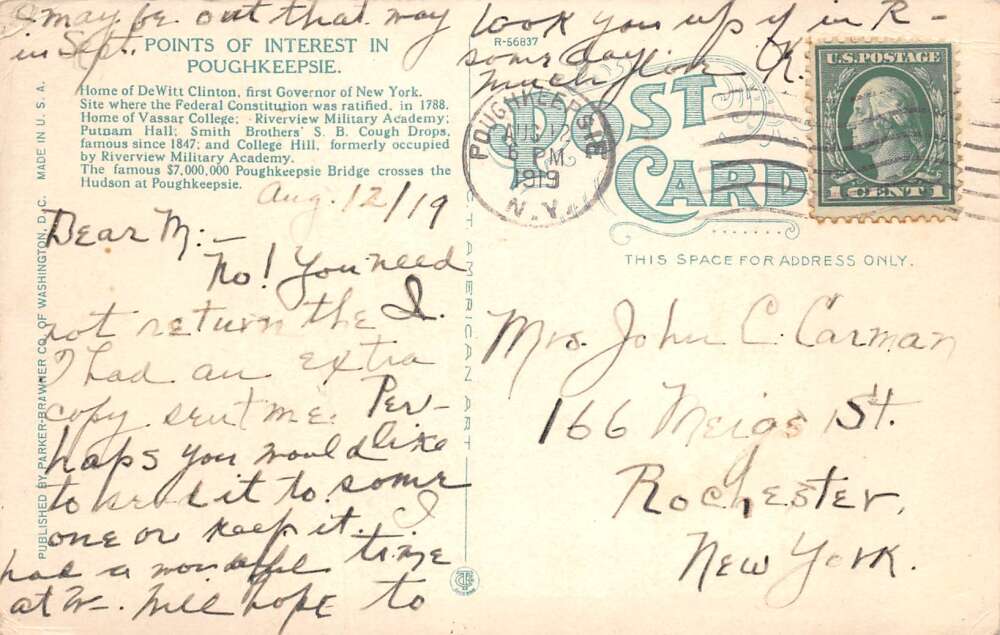 I may be out that way
in Sept.
look you up if in R-
some day.
Much love K.
POINTS OF INTEREST IN
POUGHKEEPSIE.
Home of DeWitt Clinton, first Governor of New York.
Site where the Federal Constitution was ratified, in 1788.
Home of Vassar College; Riverview Military Academy;
Putnam Hall; Smith Brothers' S. B. Cough Drops,
famous since 1847; and College Hill, formerly occupied
by Riverview Military Academy.
The famous $7,000,000 Poughkeepsie Bridge crosses the
Hudson at Poughkeepsie.
Aug. 12/19
Dear M:-
No! You need
not return the I.
I had an extra
copy sent me. Per-
haps you would like
to send it to some
one or keep it. I
had a wonderful time
at W. Will hope to
PUBLISHED BY PARKER-BRAWNER CO. OF WASHINGTON, D.C. MADE IN U. S. A.
R-56837
POST
CARD
POUGHKEEPSIE
AUG 12
6 PM
1919
N.Y.
U.S. POSTAGE
1 CENT 1
THIS SPACE FOR ADDRESS ONLY.
CT AMERICAN ART
Mrs. John C. Carman
166 Meigs St.
Rochester,
New York.